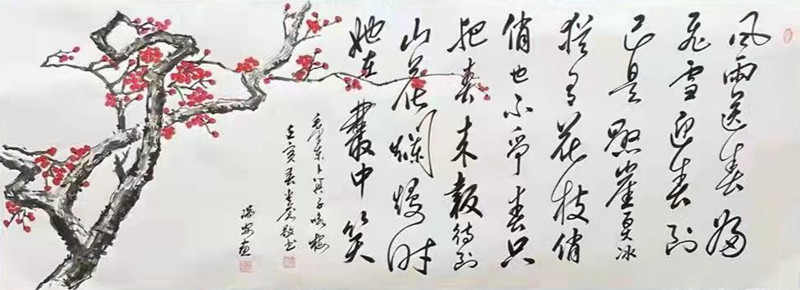 风雨送春归
飞雪迎春到
已是悬崖百丈冰
犹有花枝俏
俏也不争春只
把春来報待到
山花爛熳时
她在叢中笑
毛泽东卜算子咏梅